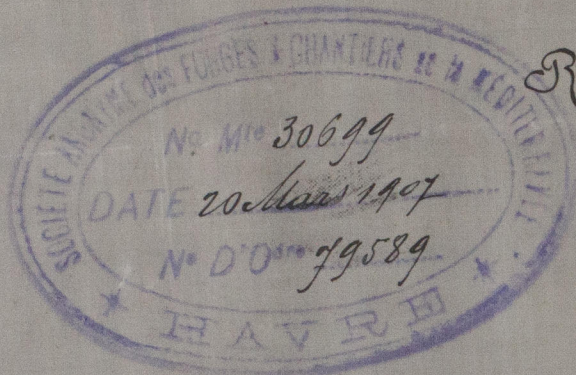 SOCIÉTÉ ANONYME DES FORGES & CHANTIERS de la MÉDITERRANÉE
R
No Mle 30699
DATE 20 Mars 1907
No D'Ordre 79589
HAVRE